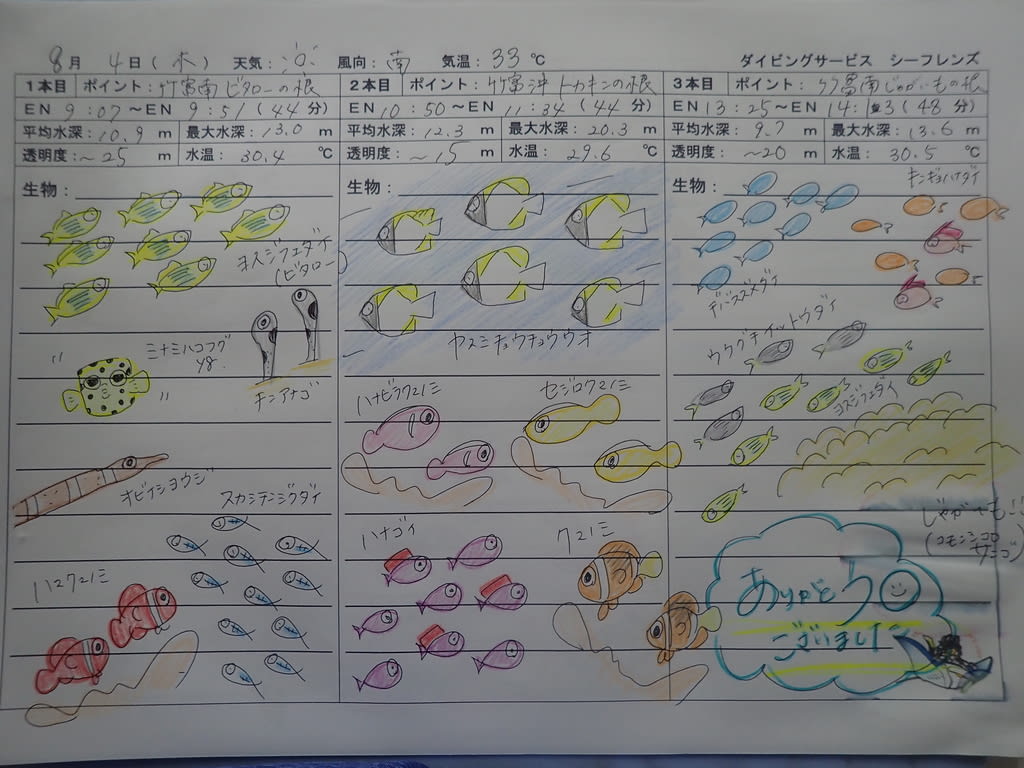 8月 4日(木) 天気: 風向: 南 気温: 33℃ ダイビングサービス シーフレンズ
1本目 ポイント: 竹富南 ビタローの根
EN 9:07～EN 9:51 (44分)
平均水深: 10.9 m 最大水深: 13.0 m
透明度: ～25 m 水温: 30.4 ℃
生物:
ヨスジフエダイ
(ビタロー
ミナミハコフグ
yg.
チンアナゴ
オビイシヨウジ
スカシテンジクダイ
ハマクマノミ
2本目 ポイント: 竹富沖 トカキンの根
EN 10:50～EN 11:34 (44分)
平均水深: 12.3 m 最大水深: 20.3 m
透明度: ～15 m 水温: 29.6 ℃
生物:
ヤスミチョウチョウウオ
ハナビラクマノミ
セジロクマノミ
ハナゴイ
クマノミ
3本目 ポイント: 竹富南 じゃがいもの根
EN 13:25～EN 14:13 (48分)
平均水深: 9.7 m 最大水深: 13.6 m
透明度: ～20 m 水温: 30.5 ℃
生物:
キンギョハナダイ
デバスズメダイ
ウラウチイットウダイ
ヨスジフエダイ
じゃがいも
(コモンシコロ
サンゴ)
ありがとう
ございました